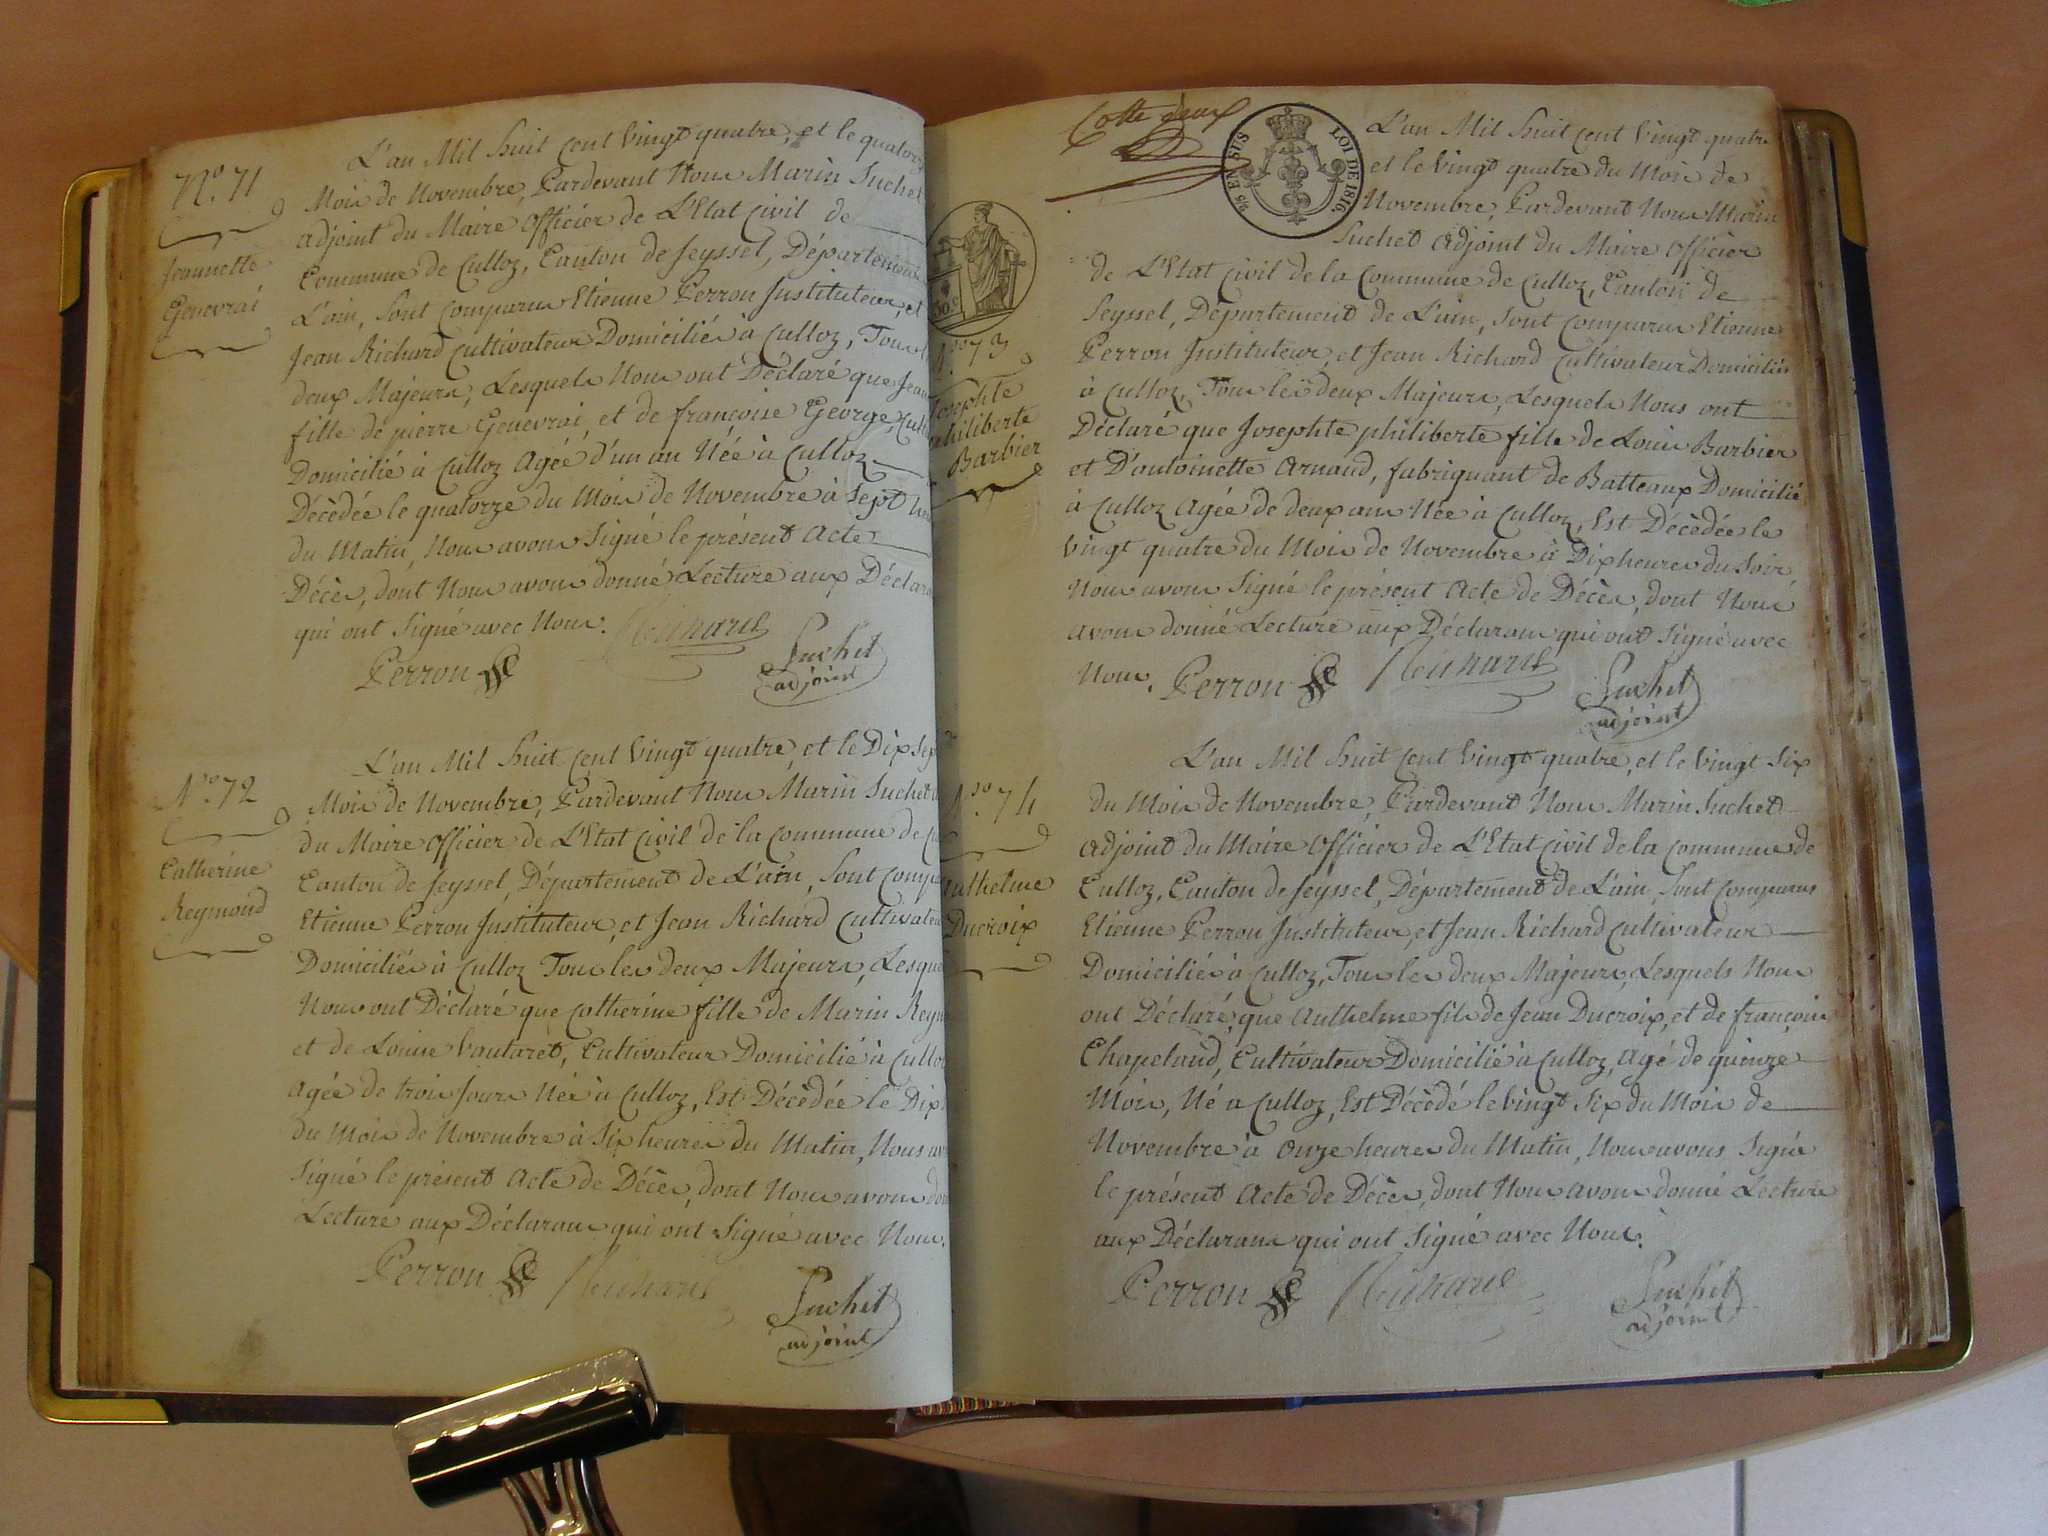 N.° 71
Jeannette
Genevrai
L'an Mil huit Cent Vingt quatre, et le quatorze
Mois de Novembre, Pardevant Nous Marin Suchet
adjoint du Maire Officier de L'Etat Civil de
Commune de Culloz, Canton de Seyssel, Département
L'ain, Sont Comparus Etienne Perron Instituteur, et
Jean Richard Cultivateur Domicilié à Culloz, Tous
deux Majeurs, Lesquels Nous ont Déclaré que Jean
fille de pierre Genevrai et de françoise George, Cult
Domicilié à Culloz Agéé d'un an Néé à Culloz
Décédée le quatorze du Mois de Novembre à Sept heu
du Matin, Nous avons Signé le présent Acte
Décès, dont Nous avons donné Lecture aux Déclara
qui ont Signé avec Nous. Richard
Perron Suchet
adjoint
N.° 72
Catherine
Reymond
L'an Mil huit Cent Vingt quatre, et le Dix Sep
Mois de Novembre, Pardevant Nous Marin Suchet
du Maire Officier de L'Etat Civil de la Commune de Cu
Canton de Seyssel, Département de L'ain, Sont Comp
Etienne Perron Instituteur, et Jean Richard Cultivateu
Domiciliés à Culloz Tous les deux Majeurs, Lesque
Nous ont Déclaré que Catherine fille de Marin Reym
et de Louise Vautaret, Cultivateur Domicilié à Cullo
Agée de trois Jours Née à Culloz, Est Décédée le Dix
du Mois de Novembre à Six heures du Matin, Nous av
Signé le présent Acte de Décès, dont Nous avons do
Lecture aux Déclarans qui ont Signé avec Nous.
Perron Richard Suchet
adjoint
Cotte deux
LOI DE 1816
EN SUS
50c
N.° 73
Josephte
philiberte
Barbier
L'an Mil huit Cent Vingt quatre
et le Vingt quatre du Mois de
Novembre, Pardevant Nous Marin
Suchet Adjoint du Maire Officier
de L'Etat Civil de la Commune de Culloz, Canton de
Seyssel, Département de L'ain, Sont Comparus Etienne
Perron Instituteur, et Jean Richard Cultivateur Domiciliés
à Culloz, Tous les deux Majeurs, Lesquels Nous ont
Déclaré que Josephte philiberte fille de Louis Barbier
et D'antoinette Arnaud, fabriquant de Batteaux Domicilié
à Culloz Agée de deux ans Née à Culloz, Est Décédée le
Vingt quatre du Mois de Novembre à Dix heures du Soir
Nous avons Signé le présent Acte de Décès, dont Nous
avons donné Lecture aux Déclarans qui ont Signé avec
Nous. Perron Richard Suchet
adjoint
N.° 74
Anthelme
Ducroix
L'an Mil huit Cent Vingt quatre, et le Vingt Six
du Mois de Novembre, Pardevant Nous Marin Suchet
Adjoint du Maire Officier de L'Etat Civil de la Commune de
Culloz, Canton de Seyssel, Département de L'ain, Sont Comparus
Etienne Perron Instituteur, et Jean Richard Cultivateur
Domiciliés à Culloz, Tous les deux Majeurs, Lesquels Nous
ont Déclaré, que Anthelme fils de Jean Ducroix, et de françoise
Chapeland, Cultivateur Domicilié à Culloz, Agé de quinze
Mois, Né à Culloz, Est Décédé le Vingt Six du Mois de
Novembre à Onze heures du Matin, Nous avons Signé
le présent Acte de Décès, dont Nous avons donné Lecture
aux Déclarans qui ont Signé avec Nous.
Perron Richard Suchet
adjoint